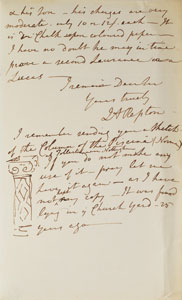 & his Son – his charges are very
moderate. only 10 or 12/ each – He
is in Chalk upon coloured paper –
I have no doubt he may in time
prove a second Lawrence
I remain Dear Sir
Yours truly
J A Repton
I remember sending you a Sketch
of the Column of the Piscina,
if you do not make any
use of it – pray let me
have it again – as I have
not any copy – It was found
lying in a Church Yard – 25
years ago –